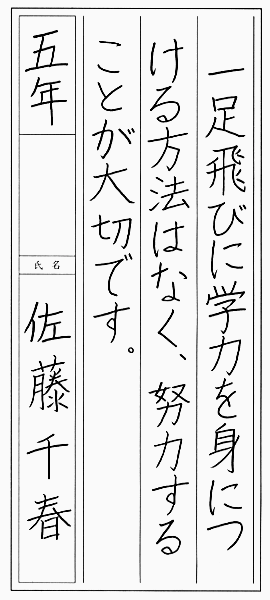 一足飛びに学力を身につ
ける方法はなく、努力する
ことが大切です。
五年
氏名
佐藤千春